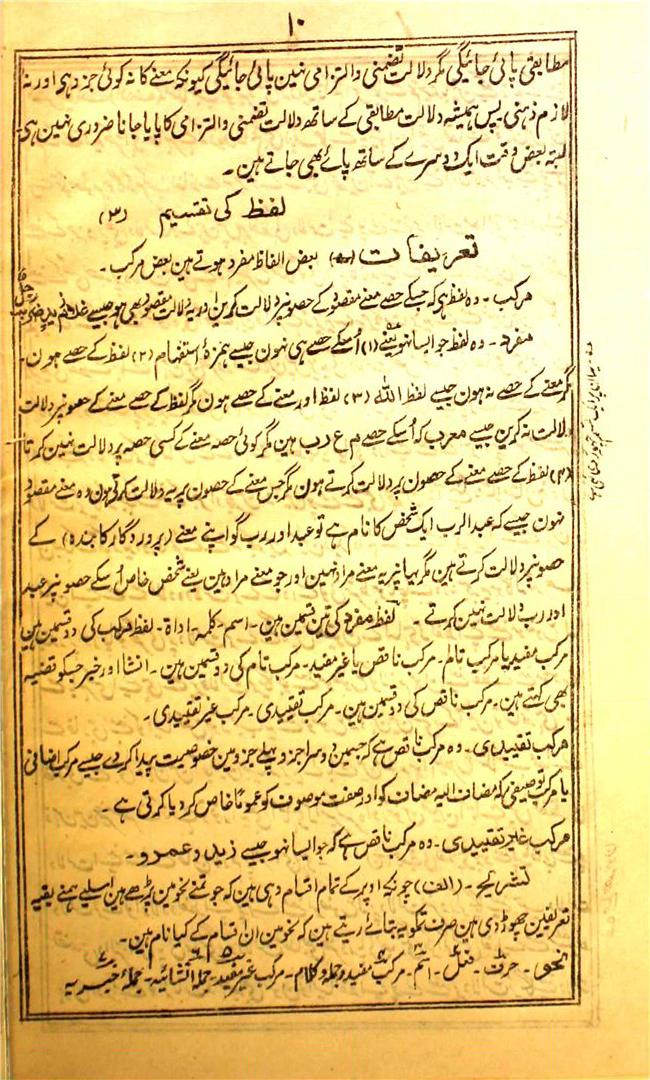 ۱۰
مطابقی پائی جائیگی مگر دلالت تضمنی والتزامی نہین پائی جائیگی کیونکہ معنے کا نہ کوئی جز دہی اور نہ
لازم ذہنی پس ہمیشہ دلالت مطابقی کے ساتھ دلالت تضمنی والتزامی کا پایا جانا ضروری نہین ہی
لبتہ بعض وقت ایک دوسرے کے ساتھ پائے بھی جاتے ہین۔
لفظ کی تقسیم (۳)
تعریفات بعض الفاظ مفرد ہوتے ہین بعض مرکب۔
مرکب۔ وہ لفظ ہی کہ جسکے حصے معنے مقصود کے حصونپر دلالت کرین اور یہ دلالت مقصود بھی ہو جیسے
مفرد۔ وہ لفظ جو ایسا نہو یعنے (۱) اُسکے حصے ہی نہون جیسے ہمزۂ استفہام (۲) لفظ کے حصے ہون۔
مگر معنے کے حصے نہ ہون جیسے لفظ اللہ (۳) لفظ اور معنے کے حصے ہون مگر لفظ کے حصے معنے کے حصونپر دلالت
دلالت نہ کرین جیسے معرب کہ اُسکے حصے م ع ر ب ہین مگر کوئی حصہ معنے کے کسی حصہ پر دلالت نہین کرتا
(۴) لفظ کے حصے معنے کے حصون پر دلالت کرتے ہون مگر جس معنے کے حصون پر یہ دلالت کرتی ہون وہ معنے مقصود
نہون جیسے کہ عبد الرب ایک شخص کا نام ہے تو عبد اور رب گو اپنے معنے (پروردگار کا بندہ) کے
حصونپر دلالت کرتے ہین مگر یہانپر یہ معنے مراد نہین اور جو معنے مراد ہین یعنے شخص خاص اُسکے حصونپر عبد
اور رب دلالت نہین کرتے ۔ لفظ مفرد کی تین قسمین ہین۔ اسم۔ کلمہ۔ اداۃ۔ لفظ مرکب کی دو قسمین ہین
مرکب مفید یا مرکب تام۔ مرکب ناقص یا غیر مفید۔ مرکب تام کی دو قسمین ہین۔ انشا اور خبر جسکو قضیہ
بھی کہتے ہین۔ مرکب ناقص کی دو قسمین ہین۔ مرکب تقییدی۔ مرکب غیر تقییدی۔
مرکب تقییدی۔ وہ مرکب ناقص ہے کہ جسمین دوسرا جز و پہلے جز و مین خصوصیت پیدا کر دے جیسے مرکب اضافی
یا مرکب توصیفی کہ مضاف الیہ مضاف کو اور صفت موصوف کو عموماً خاص کر دیا کرتی ہے۔
مرکب غیر تقییدی۔ وہ مرکب ناقص ہے کہ جو ایسا نہو جیسے زید و عمرو۔
تشریح۔ (الف) چونکہ اوپر کے تمام اقسام وہی ہین کہ جو تمنے نحو مین پڑھے ہین اسلیے ہمنے بقیہ
تعریفین چھوڑ دی ہین صرف تمکو یہ بتائے دیتے ہین کہ نحو مین ان اقسام کے کیا نام ہین۔
نحو۔ حرف۔ فعل۔ اسم۔ مرکب مفید و جملہ و کلام۔ مرکب غیر مفید۔ جملہ انشائیہ۔ جملۂ خبریہ